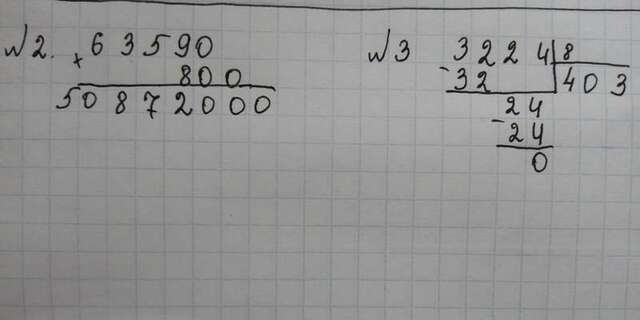 №2. × 63590
800
50872000
№3 3224 8
- 32 403
24
- 24
0